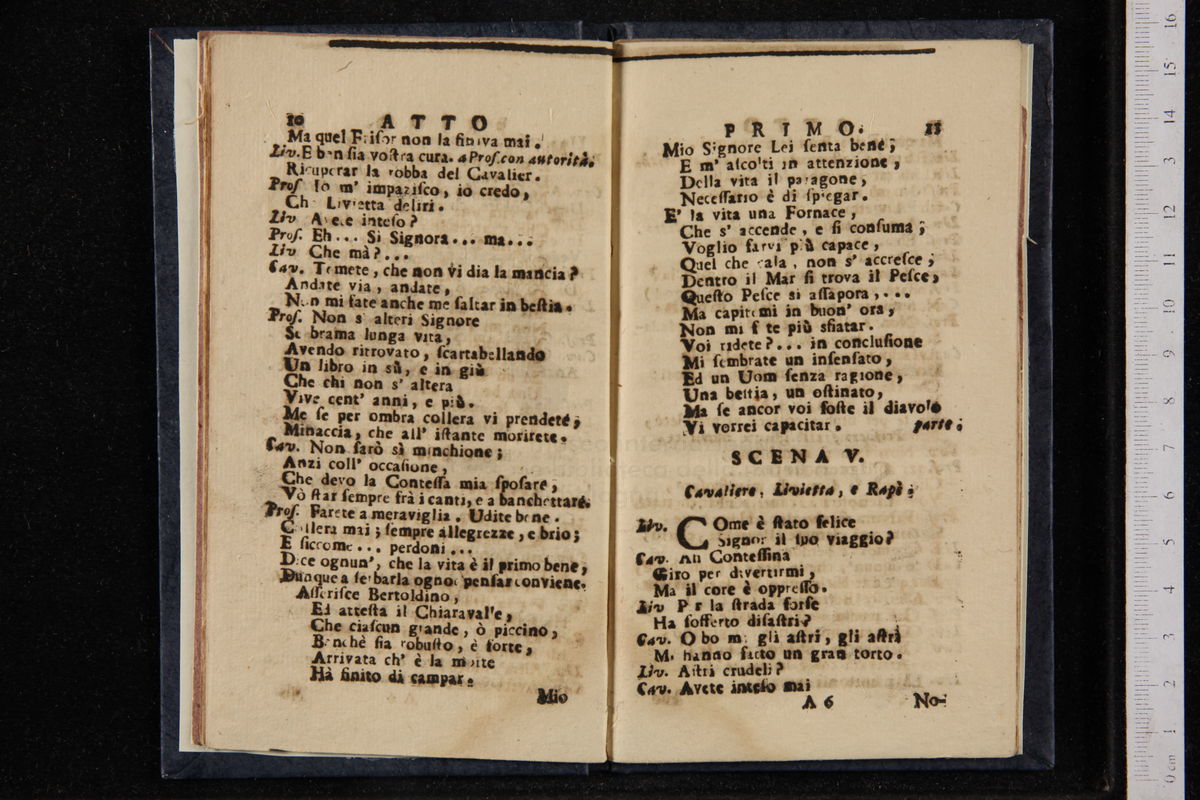 10 ATTO
Ma quel Frisor non la finiva mai.
Liv. E ben sia vostra cura. a Prof. con autorità.
Ricuperar la robba del Cavalier.
Prof. Io m' impazisco, io credo,
Che Livietta deliri.
Liv Avete inteso?
Prof. Eh... Si Signora... ma...
Liv Che mà?...
Cav. Temete, che non vi dia la mancia?
Andate via, andate,
Non mi fate anche me saltar in bestia.
Prof. Non s' alteri Signore
Se brama lunga vita,
Avendo ritrovato, scartabellando
Un libro in sù, e in giù
Che chi non s' altera
Vive cent' anni, e più.
Me se per ombra collera vi prendete;
Minaccia, che all' istante morirete.
Cav. Non sarò sì minchione;
Anzi coll' occasione,
Che devo la Contessa mia sposare,
Vò star sempre frà i canti, e a banchettare.
Prof. Farete a meraviglia. Udite bene.
Collera mai; sempre allegrezze, e brio;
E siccome... perdoni...
Dice ognun', che la vita è il primo bene,
Dunque a serbarla ognor pensar conviene.
Asserisce Bertoldino,
Ed attesta il Chiaravalle,
Che ciascun grande, ò piccino,
Benchè sia robusto, e forte,
Arrivata ch' è la morte
Hà finito di campar.
Mio
PRIMO. 11
Mio Signore Lei senta bene;
E m' ascolti in attenzione,
Della vita il paragone,
Necessario è di spiegar.
E' la vita una Fornace,
Che s' accende, e si consuma;
Voglio farvi più capace,
Quel che cala, non s' accresce;
Dentro il Mar si trova il Pesce,
Questo Pesce si assapora,...
Ma capitemi in buon' ora,
Non mi fate più sfiatar.
Voi ridete?... in conclusione
Mi sembrate un insensato,
Ed un Uom senza ragione,
Una bestia, un ostinato,
Ma se ancor voi foste il diavolo
Vi vorrei capacitar. parte.
SCENA V.
Cavaliere, Livietta, e Rapè.
Liv. COme è stato felice
Signor il suo viaggio?
Cav. Ah Contessina
Giro per divertirmi,
Ma il core è oppresso.
Liv Per la strada forse
Ha sofferto disastri?
Cav. O bo mi gli astri, gli astri
Mi hanno fatto un gran torto.
Liv. Astri crudeli?
Cav. Avete inteso mai
A 6 No-